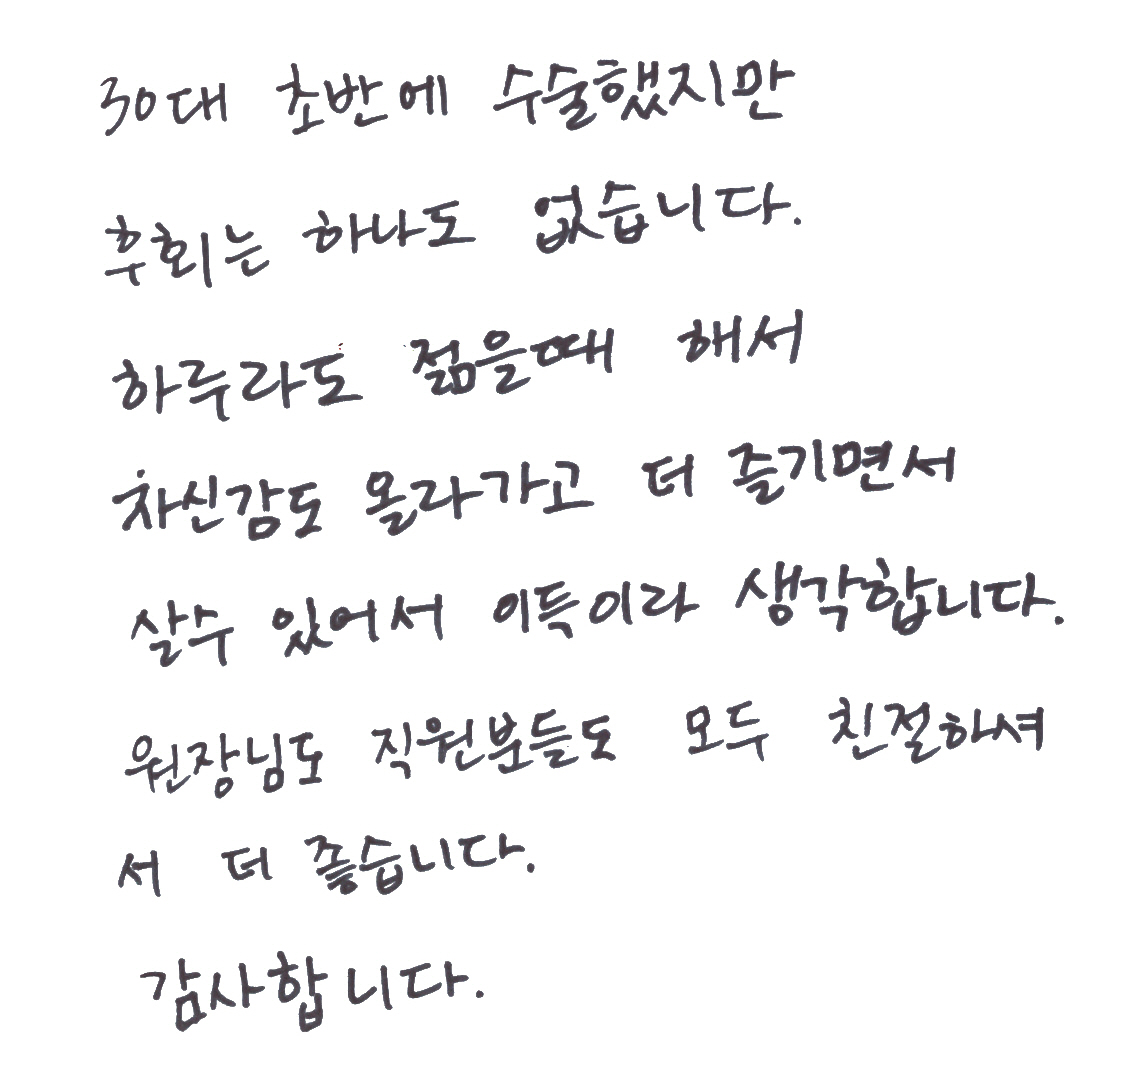 30대 초반에 수술했지만
후회는 하나도 없습니다.
하루라도 젊을때 해서
자신감도 올라가고 더 즐기면서
살수 있어서 이득이라 생각합니다.
원장님도 직원분들도 모두 친절하셔
서 더 좋습니다.
감사합니다.